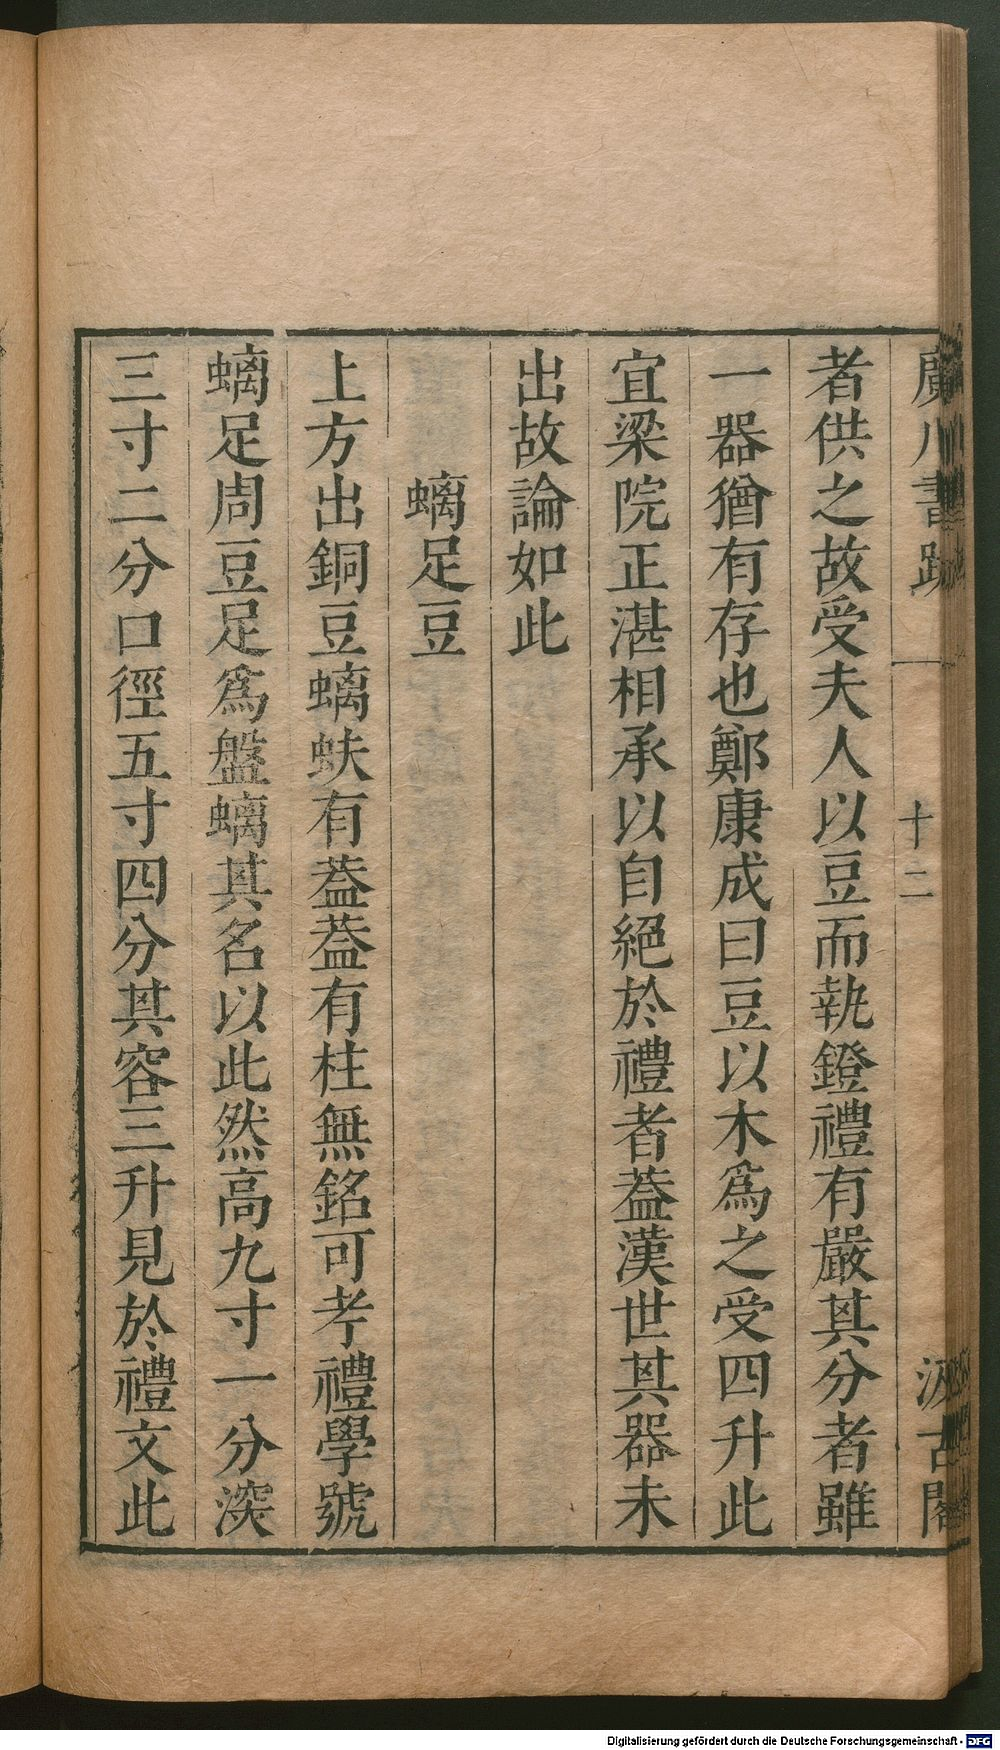 廣川書跋 十二 汲古閣
者供之故受夫人以豆而執鐙禮有嚴其分者雖
一器猶有存也鄭康成曰豆以木爲之受四升此
宜梁院正湛相承以自絕於禮者葢漢世其器未
出故論如此
螭足豆
上方出銅豆螭蚨有葢葢有柱無銘可孝禮學號
螭足周豆足爲盤螭其名以此然高九寸一分深
三寸二分口徑五寸四分其容三升見於禮文此
Digitalisierung gefördert durch die Deutsche Forschungsgemeinschaft - DFG